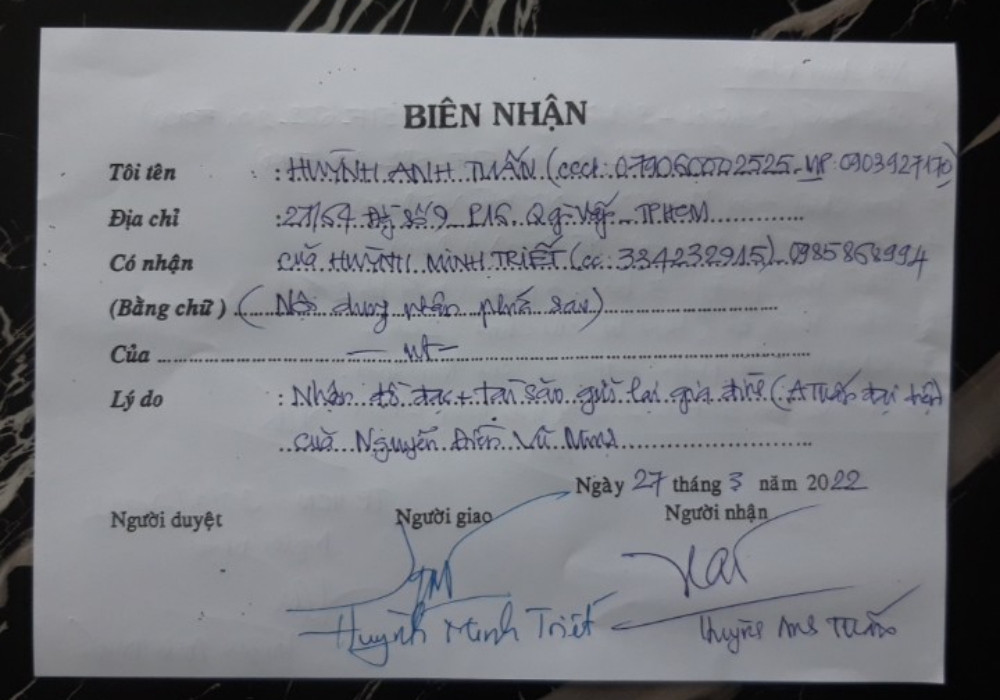 BIÊN NHẬN
Tôi tên : HUỲNH ANH TUẤN (CCCD: 079060002525 - MP: 0903927170)
Địa chỉ : 27/54 Đg Số 9 P16 Q gò Vấp TPHCM
Có nhận của HUỲNH MINH TRIẾT (cc: 334232915) 0985868994
(Bằng chữ) (Nội dung nhận phía sau)
Của - nt -
Lý do : Nhận đồ đạc + tài sản gửi lại gia đình (A Tuấn đại diện)
của Nguyễn Vũ
Ngày 27 tháng 3 năm 2022
Người duyệt Người giao Người nhận
Huỳnh Minh Triết Huỳnh Anh Tuấn